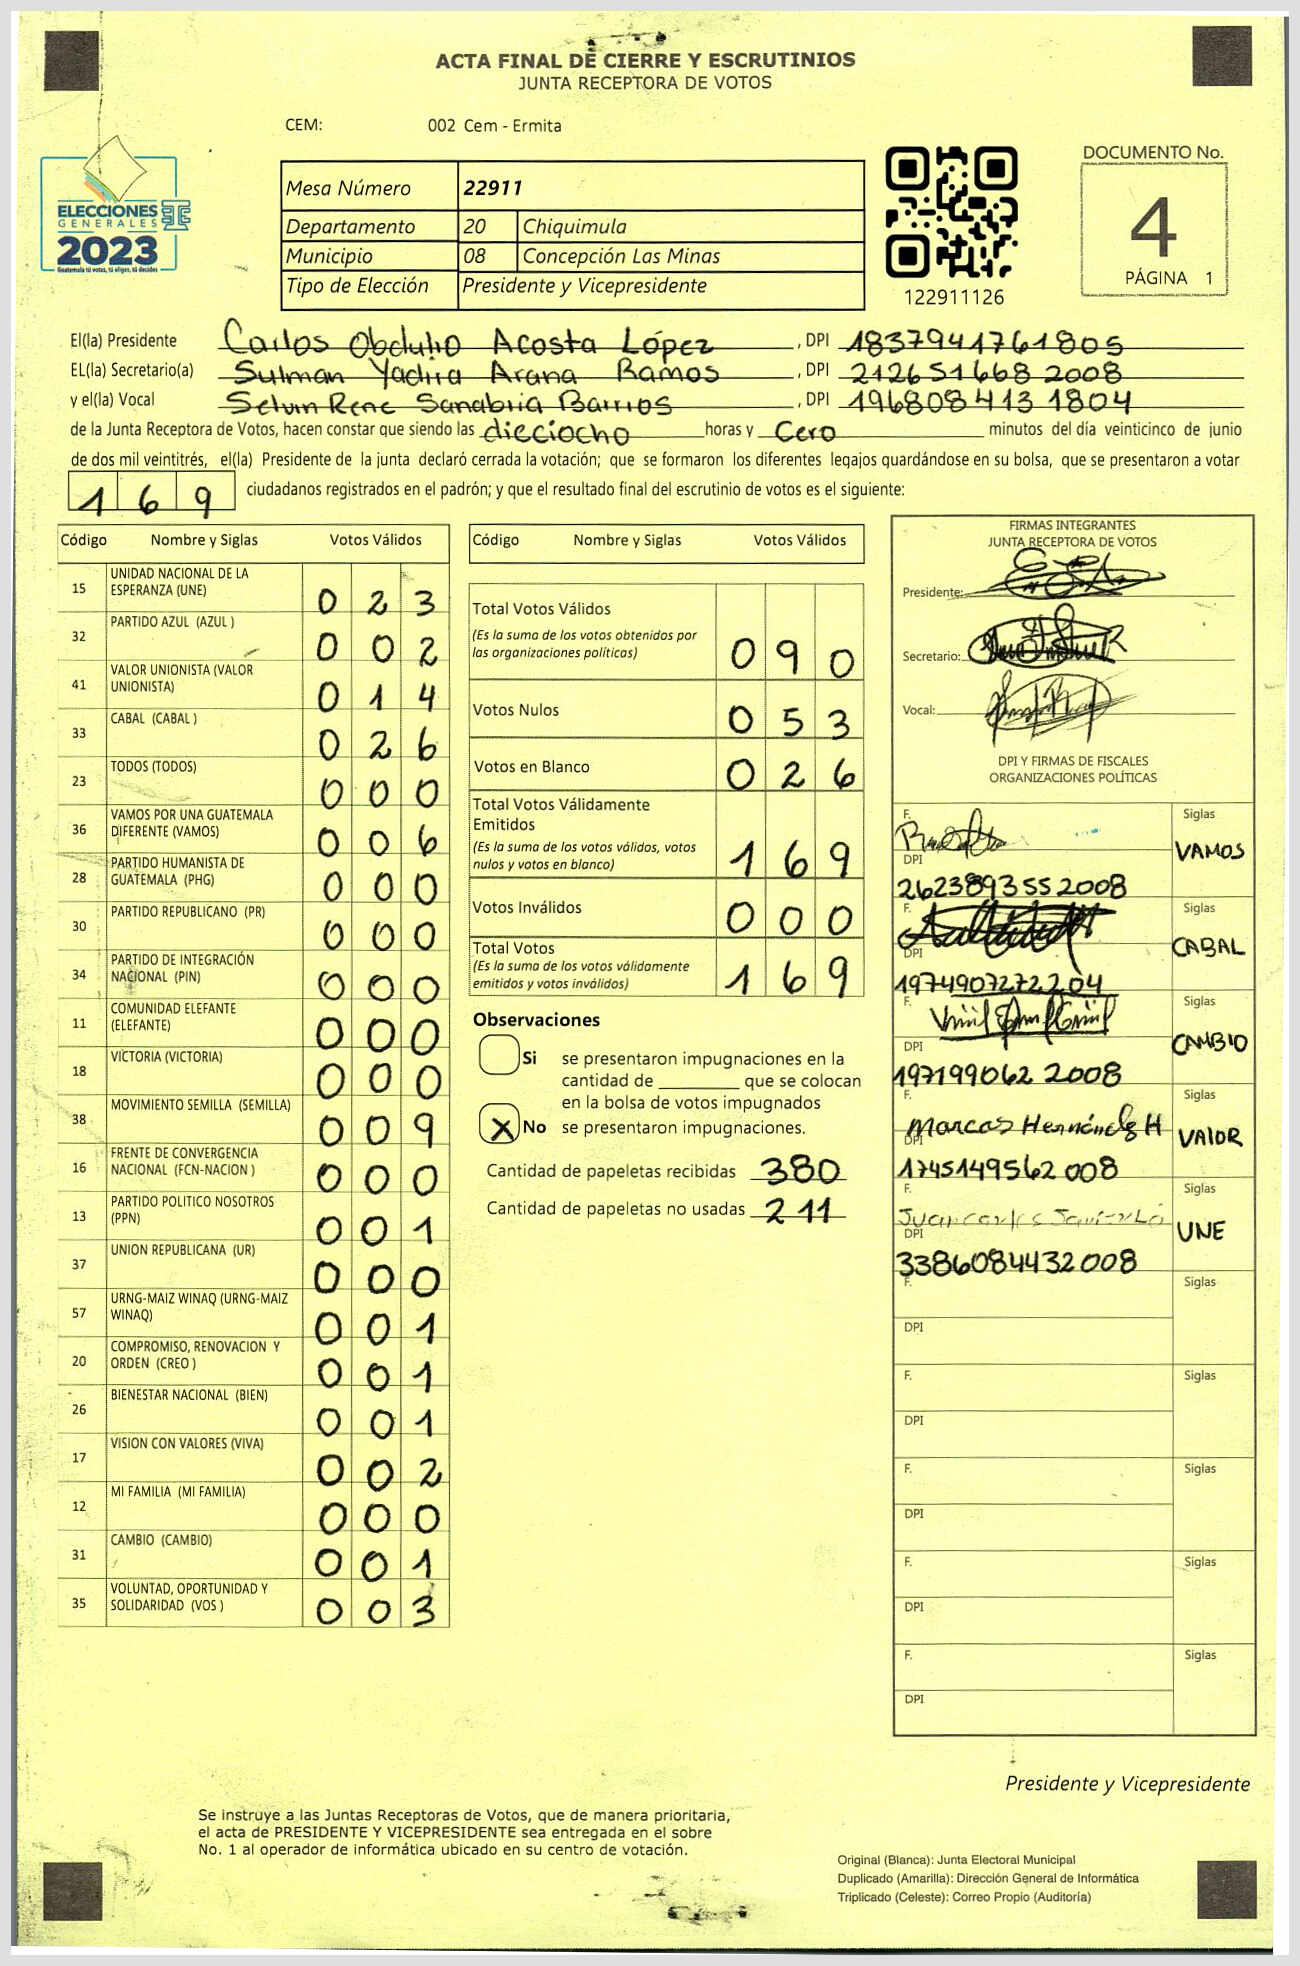 ACTA FINAL DE CIERRE Y ESCRUTINIOS
JUNTA RECEPTORA DE VOTOS
CEM: 002 Cem - Ermita
ELECCIONES
GENERALES
2023
Guatemala tú votas, tú eliges, tú decides
Mesa Número 22911
Departamento 20 Chiquimula
Municipio 08 Concepción Las Minas
Tipo de Elección Presidente y Vicepresidente
122911126
DOCUMENTO No.
4
PÁGINA 1
El(la) Presidente Carlos Obdulio Acosta López, DPI 1837941761805
EL(la) Secretario(a) Sulman Yadira Arana Ramos, DPI 212651668 2008
y el(la) Vocal Selvin Rene Sanabria Barrios, DPI 196808413 1804
de la Junta Receptora de Votos, hacen constar que siendo las dieciocho horas y Cero minutos del día veinticinco de junio
de dos mil veintitrés, el(la) Presidente de la junta declaró cerrada la votación; que se formaron los diferentes legajos quardándose en su bolsa, que se presentaron a votar
169 ciudadanos registrados en el padrón; y que el resultado final del escrutinio de votos es el siguiente:
Código Nombre y Siglas Votos Válidos
15 UNIDAD NACIONAL DE LA ESPERANZA (UNE) 0 2 3
32 PARTIDO AZUL (AZUL ) 0 0 2
41 VALOR UNIONISTA (VALOR UNIONISTA) 0 1 4
33 CABAL (CABAL ) 0 2 6
23 TODOS (TODOS) 0 0 0
36 VAMOS POR UNA GUATEMALA DIFERENTE (VAMOS) 0 0 6
28 PARTIDO HUMANISTA DE GUATEMALA (PHG) 0 0 0
30 PARTIDO REPUBLICANO (PR) 0 0 0
34 PARTIDO DE INTEGRACIÓN NACIONAL (PIN) 0 0 0
11 COMUNIDAD ELEFANTE (ELEFANTE) 0 0 0
18 VICTORIA (VICTORIA) 0 0 0
38 MOVIMIENTO SEMILLA (SEMILLA) 0 0 9
16 FRENTE DE CONVERGENCIA NACIONAL (FCN-NACION ) 0 0 0
13 PARTIDO POLITICO NOSOTROS (PPN) 0 0 1
37 UNION REPUBLICANA (UR) 0 0 0
57 URNG-MAIZ WINAQ (URNG-MAIZ WINAQ) 0 0 1
20 COMPROMISO, RENOVACION Y ORDEN (CREO ) 0 0 1
26 BIENESTAR NACIONAL (BIEN) 0 0 1
17 VISION CON VALORES (VIVA) 0 0 2
12 MI FAMILIA (MI FAMILIA) 0 0 0
31 CAMBIO (CAMBIO) 0 0 1
35 VOLUNTAD, OPORTUNIDAD Y SOLIDARIDAD (VOS ) 0 0 3
Código Nombre y Siglas Votos Válidos
Total Votos Válidos 0 9 0
(Es la suma de los votos obtenidos por
las organizaciones políticas)
Votos Nulos 0 5 3
Votos en Blanco 0 2 6
Total Votos Válidamente
Emitidos 1 6 9
(Es la suma de los votos válidos, votos
nulos y votos en blanco)
Votos Inválidos 0 0 0
Total Votos 1 6 9
(Es la suma de los votos válidamente
emitidos y votos inválidos)
Observaciones
Si se presentaron impugnaciones en la
cantidad de ________ que se colocan
en la bolsa de votos impugnados
X No se presentaron impugnaciones.
Cantidad de papeletas recibidas 380
Cantidad de papeletas no usadas 211
FIRMAS INTEGRANTES
JUNTA RECEPTORA DE VOTOS
Presidente:
Secretario:
Vocal:
DPI Y FIRMAS DE FISCALES
ORGANIZACIONES POLÍTICAS
F. Siglas VAMOS
DPI 262389355 2008
F. Siglas CABAL
DPI 1974907272204
F. Siglas CAMBIO
DPI 197199062 2008
F. Marcos Hernández H Siglas VALOR
DPI 1745149562008
F. Juan carlos Siglas UNE
DPI 3386084432008
F. Siglas
DPI
F. Siglas
DPI
F. Siglas
DPI
F. Siglas
DPI
F. Siglas
DPI
Presidente y Vicepresidente
Se instruye a las Juntas Receptoras de Votos, que de manera prioritaria,
el acta de PRESIDENTE Y VICEPRESIDENTE sea entregada en el sobre
No. 1 al operador de informática ubicado en su centro de votación.
Original (Blanca): Junta Electoral Municipal
Duplicado (Amarilla): Dirección General de Informática
Triplicado (Celeste): Correo Propio (Auditoría)